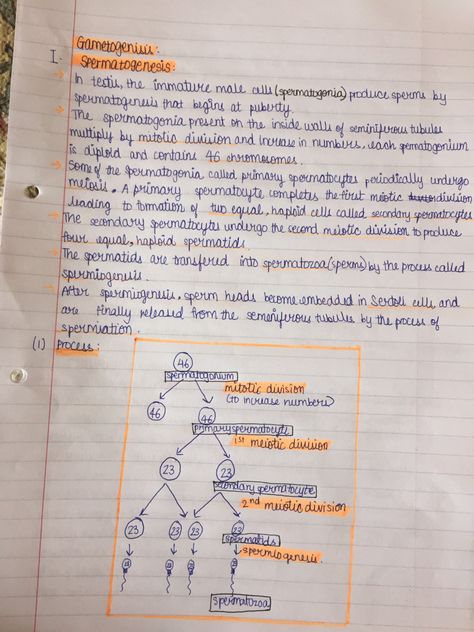 Gametogenisis:
I. Spermatogenesis:
→ In testis, the immature male cells (spermatogonia) produce sperms by
spermatogenesis that begins at puberty.
→ The spermatogonia present on the inside walls of seminiferous tubules
multiply by mitotic division and increase in numbers, each spermatogonium
is diploid and contains 46 chromosomes.
→ Some of the spermatogonia called primary spermatocytes periodically undergo
meiosis. A primary spermatocyte completes the first meiotic division
leading to formation of two equal, haploid cells called secondary spermatocytes
→ The secondary spermatocytes undergo the second meiotic division to produce
four equal, haploid spermatids.
→ The spermatids are transfered into spermatozoa (sperms) by the process called
spermiogenesis.
→ After spermiogenesis, sperm heads become embedded in Sertoli cells and
are finally released from the semeniferous tubules by the process of
spermiation.
(1) Process:
46
spermatogonium
mitotic division
(to increase numbers)
46 46
primary spermatocyte
1st meiotic division
23 23
secondary spermatocyte
2nd meiotic division
23 23 23 23
spermatids
spermiogenesis.
spermatozoa